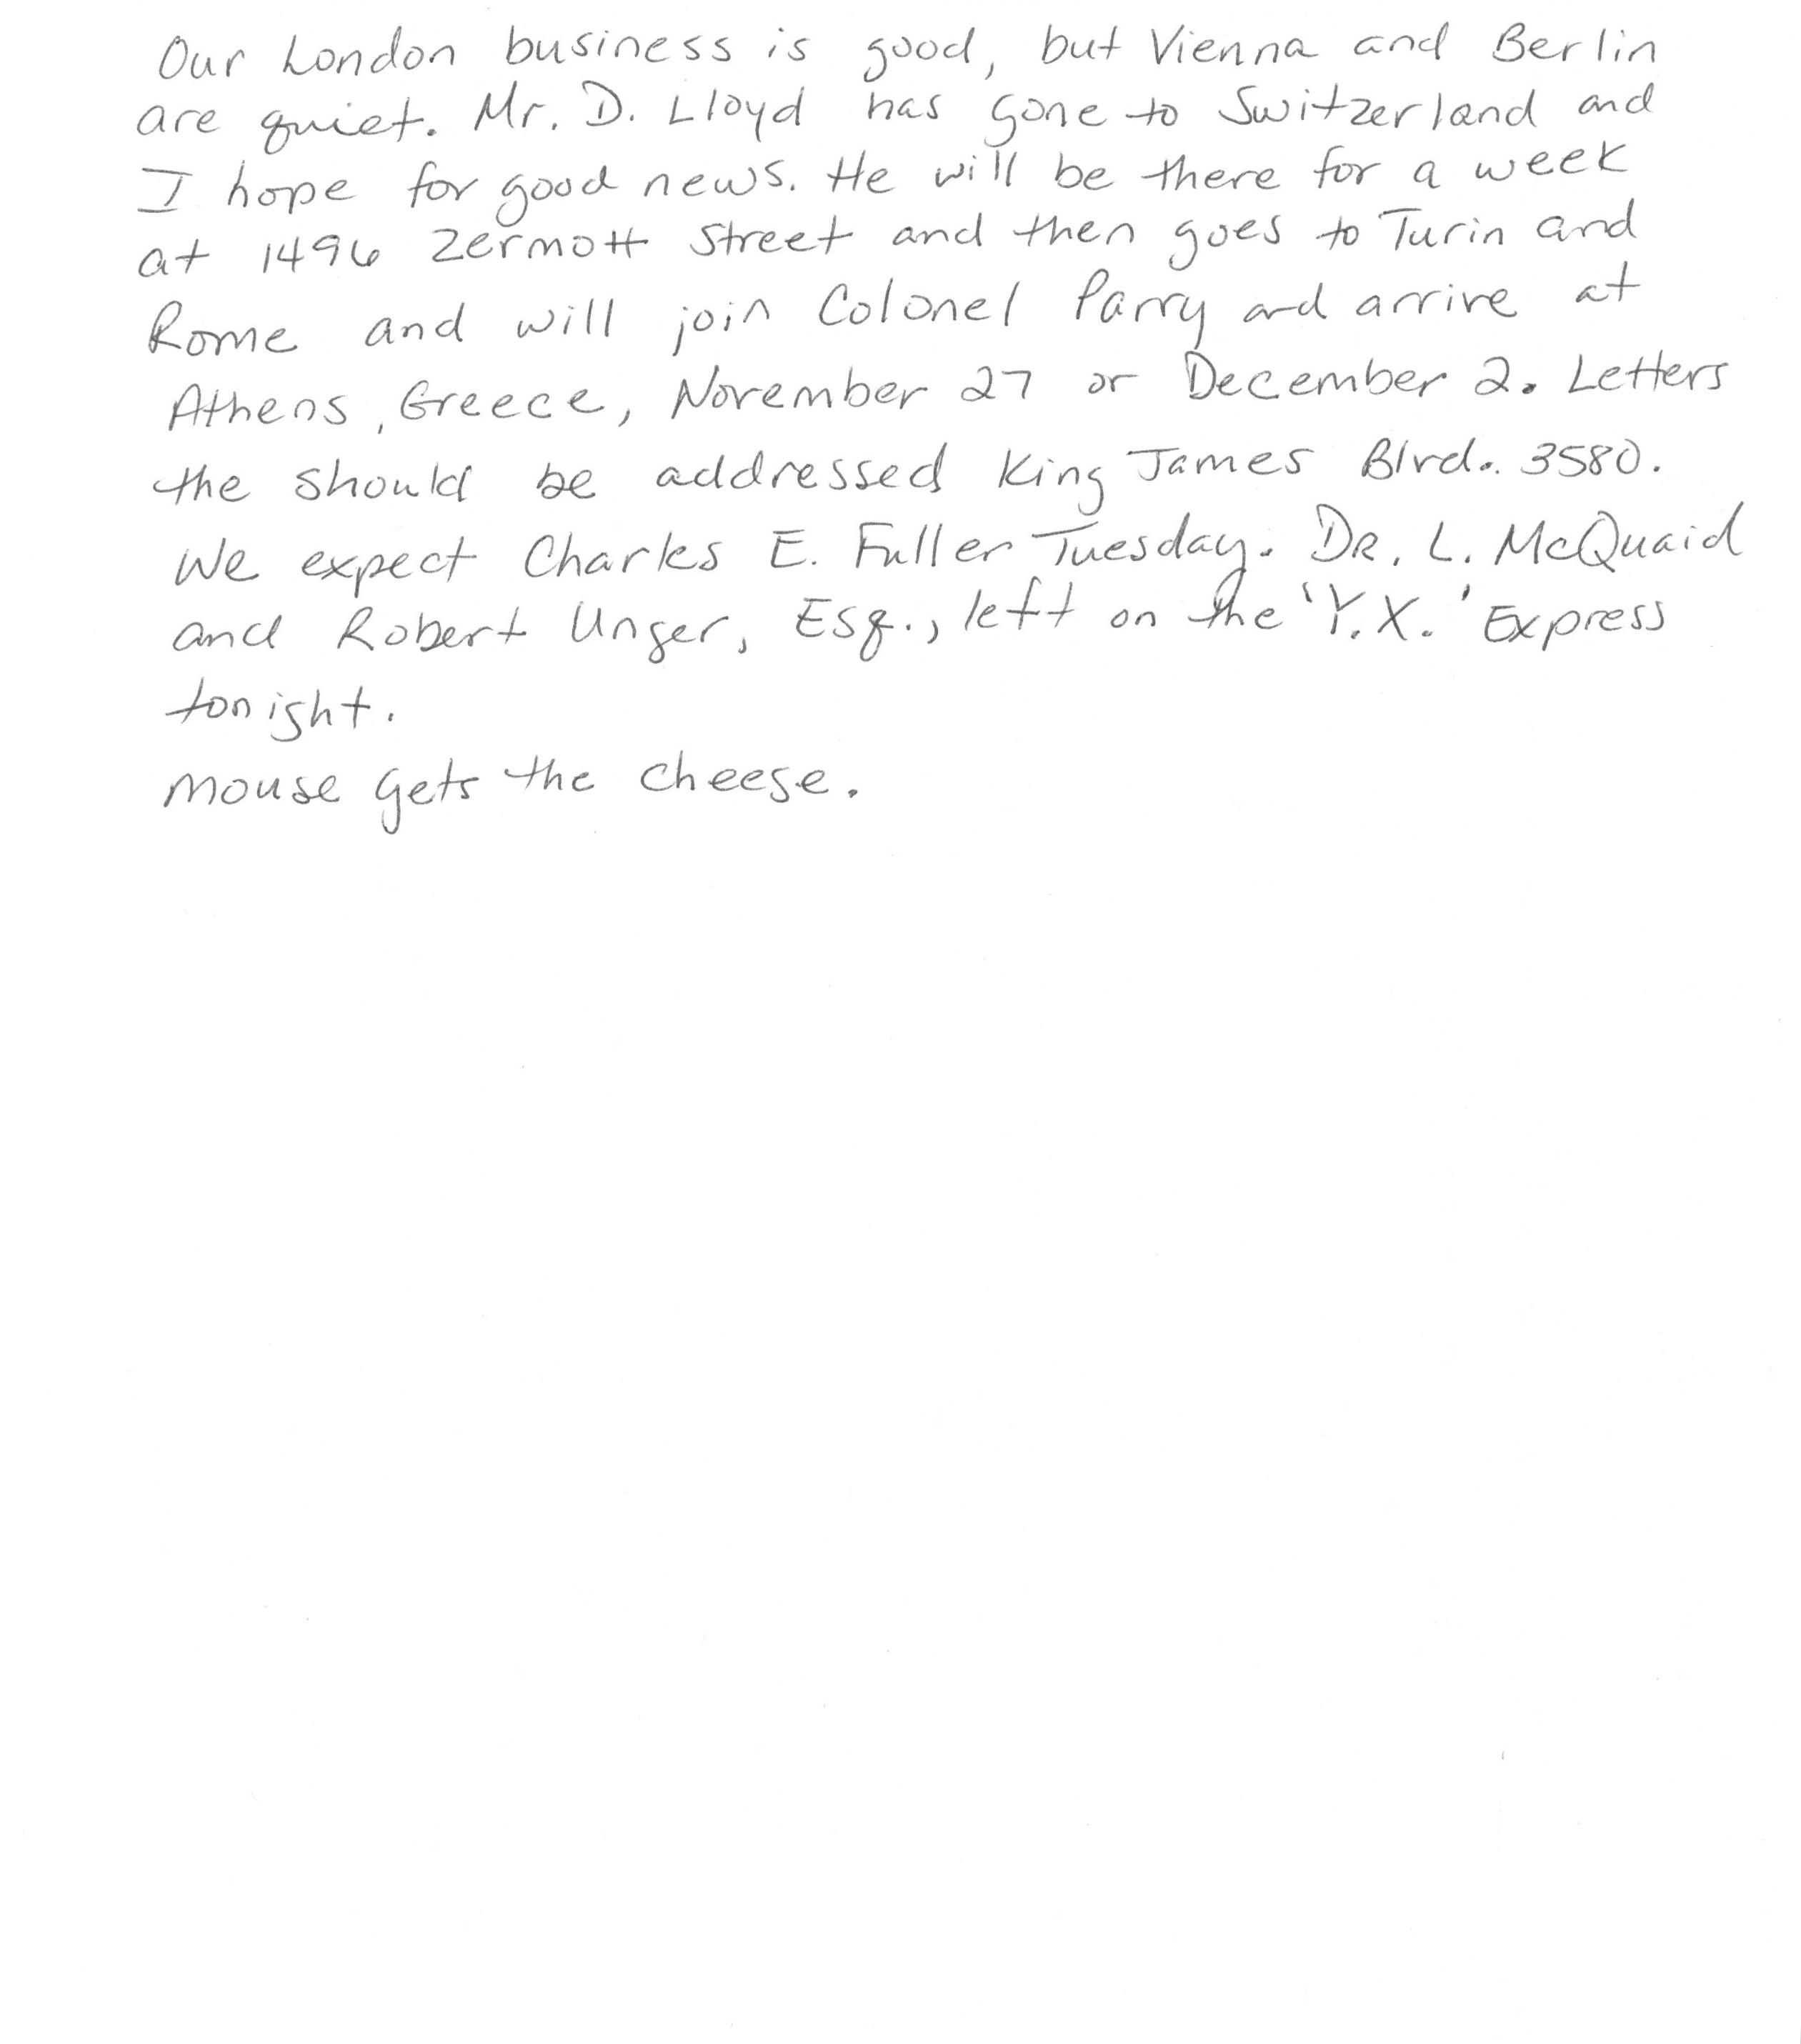 Our London business is good, but Vienna and Berlin
are quiet. Mr. D. Lloyd has gone to Switzerland and
I hope for good news. He will be there for a week
at 1496 Zermott Street and then goes to Turin and
Rome and will join Colonel Parry and arrive at
Athens, Greece, November 27 or December 2. Letters
the should be addressed King James Blvd. 3580.
We expect Charles E. Fuller Tuesday. DR. L. McQuaid
and Robert Unger, Esq., left on the 'Y.X.' Express
tonight.
Mouse gets the cheese.